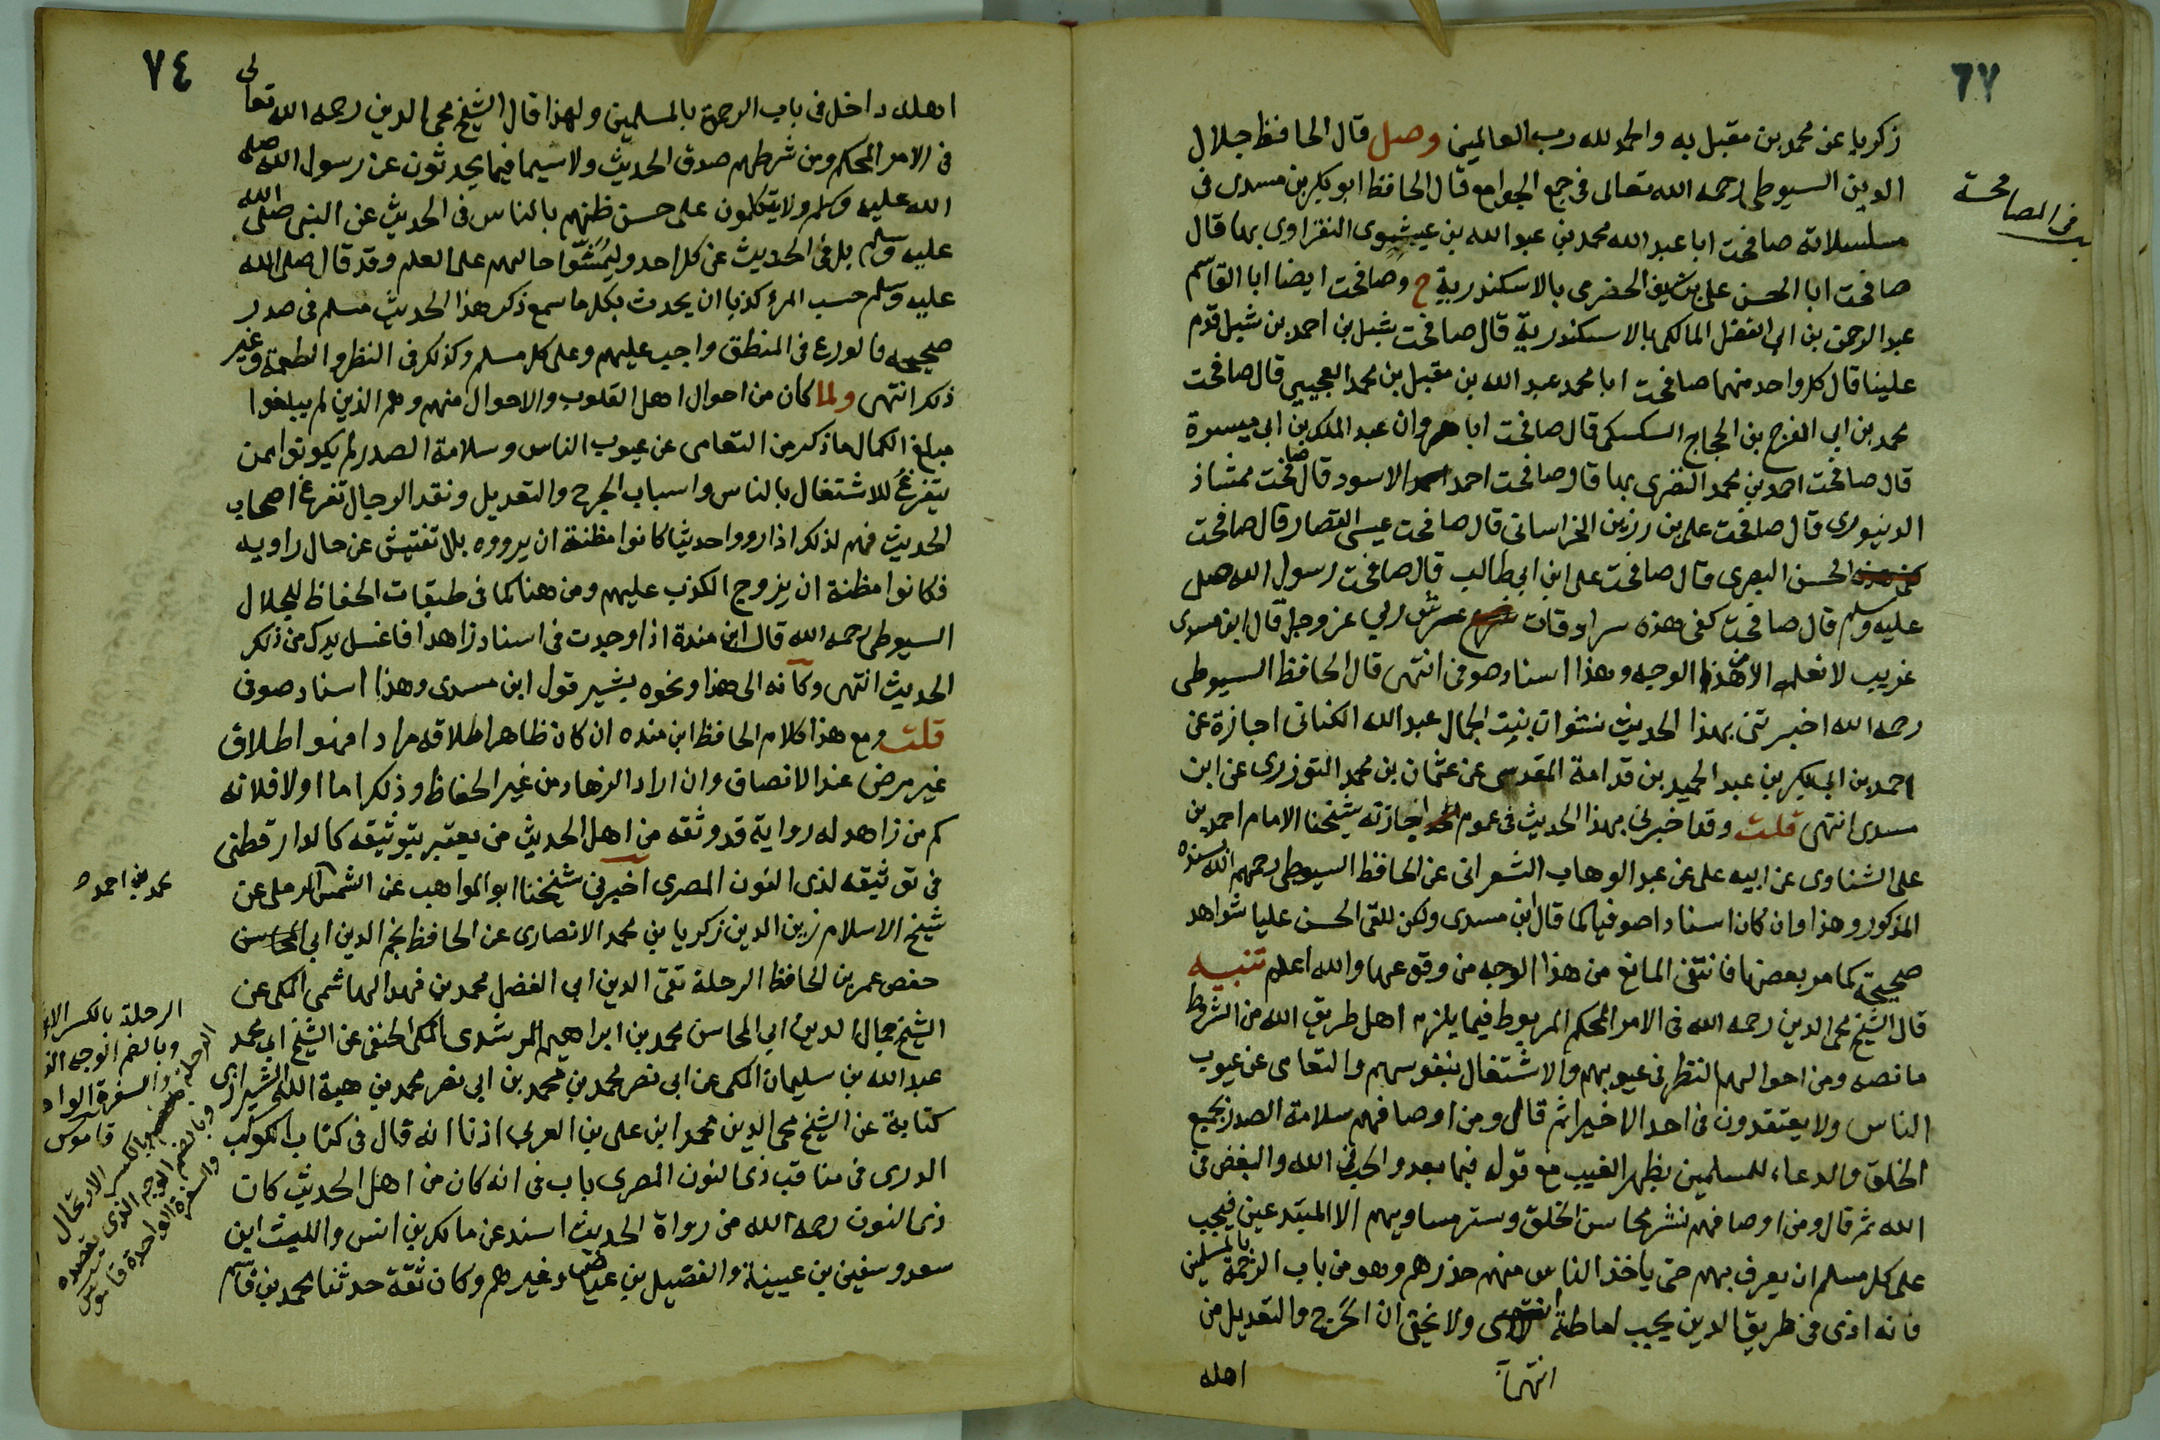 ٦٧
زكريا عن محمد بن مقبل به والحمد لله رب العالمين وصل قال الحافظ جلال
الدين السيوطي رحمه الله تعالى في جمع الجوامع قال الحافظ ابو بكر بن مسدى في
في المصافحة
مسلسلاته صافحت ابا عبد الله محمد بن عبد الله بن عيشوى النفزاوى بها قال
صافحت ابا الحسن على بن سيف الحضرمى بالاسكندرية ح وصافحت ايضا ابا القاسم
عبد الرحمن بن ابى الفضل المالكى بالاسكندرية قال صافحت شبل بن احمد بن شبل قدم
علينا قال كل واحد منهما صافحت ابا محمد عبد الله بن مقبل بن محمد العجيبى قال صافحت
محمد بن ابى الفرج بن الحجاج السكسكى قال صافحت ابا مروان عبد الملك بن ابى ميسرة
قال صافحت احمد بن محمد النفزى بها قال وصافحت احمد الاسود قال صافحت ممشاذ
الدينورى قال صافحت على بن رزين الخراسانى قال صافحت عيسى القصار قال صافحت
الحسن البصرى قال صافحت على ابن ابى طالب قال صافحت رسول الله صلى
عليه وسلم قال صافحت كفى هذه سرادقات عرش ربي عز وجل قال ابن مسدى
غريب لا نعلمه الا من هذا الوجه وهذا اسناد صوفى انتهى قال الحافظ السيوطى
رحمه الله اخبرتنى بهذا الحديث نشوان بنت الجمال عبد الله الكنانى اجازة عن
احمد بن ابى بكر بن عبد الحميد بن قدامة المقدسى عن عثمان بن محمد التوزرى عن ابن
مسدى انتهى قلت وقد اخبرنى بهذا الحديث فى عموم اجازته شيخنا الامام احمد بن
على الشناوى عن ابيه على عن عبد الوهاب الشعرانى عن الحافظ السيوطى رحمهم الله بسنده
المذكور وهذا وان كان اسنادا صوفيا كما قال ابن مسدى ولكن للقى الحسن عليا شواهد
صحيحة كما مر بعضها فانتفى المانع من هذا الوجه من وقوعها والله اعلم تنبيه
قال الشيخ محى الدين رحمه الله فى الامر المحكم المربوط فيما يلزم اهل طريق الله من الشروط
ما نصه ومن احوالهم النظر فى عيوبهم والاشتغال بنفوسهم والتعامى عن عيوب
الناس ولا يعتقدون فى احد الا خيرا ثم قال ومن اوصافهم سلامة الصدر لجميع
الخلق والدعاء للمسلمين بظهر الغيب مع قوله فيما بعد والحب فى الله والبغض فى
الله ثم قال ومن اوصافهم نشر محاسن الخلق وستر مساويهم الا المبتدعين فيجب
على كل مسلم ان يعرف بهم حتى ياخذ الناس منهم حذرهم وهو من باب الرحمة بالمسلمين
فانه اذى فى طريق الدين يجب اماطة ولا يخفى ان الجرح والتعديل من
اهله
٧٤
اهله داخل فى باب الرحمة بالمسلمين ولهذا قال الشيخ محى الدين رحمه الله تعالى
فى الامر المحكم ومن شرطهم صدق الحديث ولا سيما فيما يحدثون عن رسول الله صلى
الله عليه وسلم ولا يتكلمون على حسن ظنهم بالناس فى الحديث عن النبى صلى الله
عليه وسلم بل فى الحديث عن كل احد وليمشوا حالهم على العلم وقد قال صلى الله
عليه وسلم حسب المرء كذبا ان يحدث بكل ما سمع ذكر هذا الحديث مسلم فى صدر
صحيحه فالورع فى المنطق واجب عليهم وعلى كل مسلم وكذلك فى النظر والطعمة وغير
ذلك انتهى ولما كان من احوال اهل القلوب والاحوال منهم وهم الذين لم يبلغوا
مبلغ الكمال ما ذكر من التعامى عن عيوب الناس وسلامة الصدر لم يكونوا ممن
يتفرغ للاشتغال بالناس واسباب الجرح والتعديل ونقد الرجال تفرغ اصحاب
الحديث فهم لذلك اذا رووا حديثا كانوا مظنة ان يرووه بلا تفتيش عن حال راويه
فكانوا مظنة ان يروج الكذب عليهم ومن هنا كما فى طبقات الحفاظ للجلال
السيوطى رحمه الله قال ابن مندة اذا وجدت فى اسناد زاهدا فاغسل يدك من ذلك
الحديث انتهى وكانه الى هذا ونحوه يشير قول ابن مسدى وهذا اسناد صوفى
قلت ومع هذا كلام الحافظ ابن منده ان كان ظاهر اطلاقه مرادا فهو اطلاق
غير مرضى عند الانصاف وان اراد الزهاد من غير الحفاظ وذلك اما اولا فلانه
كم من زاهد له رواية قد وثقه من اهل الحديث من يعتبر بتوثيقه كالدارقطنى
فى توثيقه لذى النون المصرى اخبرنى شيخنا ابو المواهب عن الشمس الرملى عن
محمد بن احمد
شيخ الاسلام زين الدين زكريا بن محمد الانصارى عن الحافظ نجم الدين ابى
حفص عمر بن الحافظ الرحلة تقى الدين ابى الفضل محمد بن فهد الهاشمى المكى عن
الشيخ جمال الدين ابى المحاسن محمد بن ابراهيم المرشدى المكى الحنفى عن الشيخ ابى محمد
عبد الله بن سليمان المكى عن ابى نصر محمد بن محمد بن ابى نصر محمد بن هبة الله الشيرازى
كتابة عن الشيخ محى الدين محمد ابن على بن العربى اذنا انه قال فى كتاب الكوكب
الدرى فى مناقب ذى النون المصرى باب فى انه كان من اهل الحديث كان
ذى النون رحمه الله من رواة الحديث اسند عن مالك بن انس والليث ابن
سعد وسفين بن عيينة والفضيل بن عياض وغيرهم وكان ثقة حدثنا محمد بن قاسم
الرحلة بالكسر
وبالضم الوجه
والسفرة الواحدة
قاموس
الرحلة بالكسر الارتحال
وبالضم الوجه الذى تقصده
والسفرة الواحدة قاموس